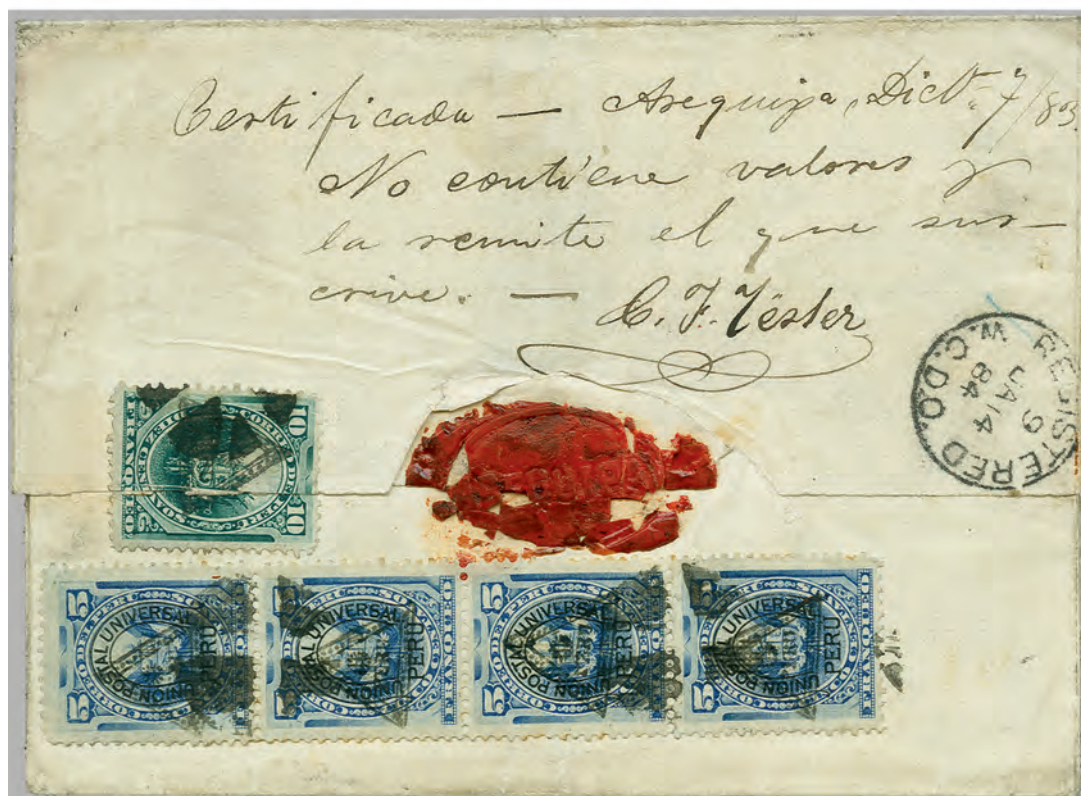 Certificada — Arequipa, Dicbe 7/83
No contiene valores y
la remite el que sus-
crive. —
C. F. Yëster
REGISTERED
9
JA 14
84
W.C.D.O.
CORREOS DEL PERU
DIEZ CENTAVOS
10 10
UNION POSTAL UNIVERSAL
PERU
UNION POSTAL UNIVERSAL
PERU
UNION POSTAL UNIVERSAL
PERU
UNION POSTAL UNIVERSAL
PERU